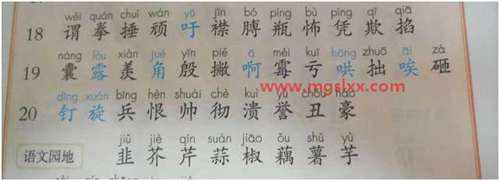 wèi quán chuí wán yū jīn bó píng bù píng qī qiā
18 谓 拳 捶 顽 吁 襟 膊 瓶 怖 凭 欺 掐
náng lòu xiàn jué yīn piē ā méi kuī hōng zhuō ài zá
19 囊 露 羡 角 殷 撇 啊 霉 亏 哄 拙 唉 砸
www.mgslxx.com
dīng xuán bīng hèn shuài chè kuì yù chǒu háo
20 钉 旋 兵 恨 帅 彻 溃 誉 丑 豪
jiǔ jiè qín suàn jiāo ǒu shǔ yù
语文园地 韭 芥 芹 蒜 椒 藕 薯 芋